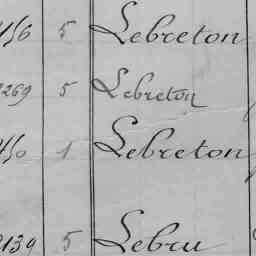 156 5 Lebreton
2269 5 Lebreton
450 1 Lebreton
2139 5 Lebru